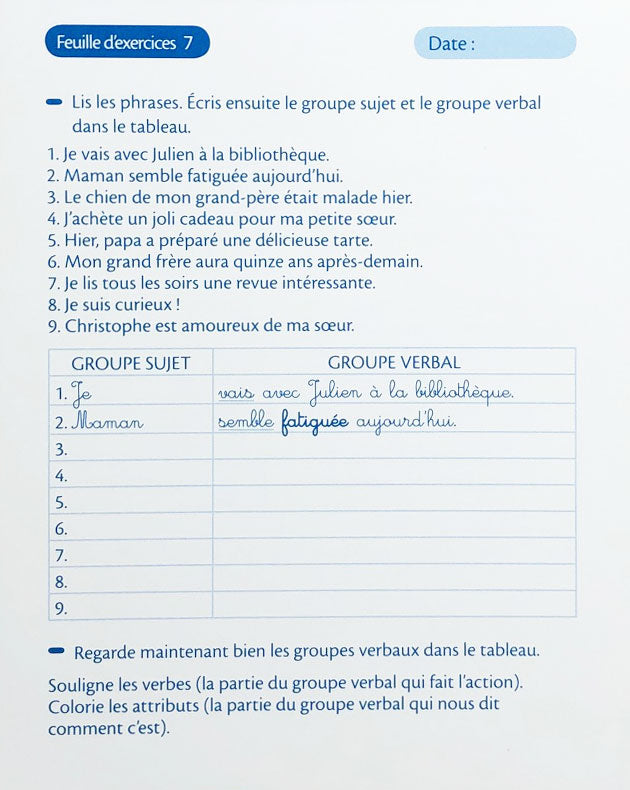 Feuille d'exercices 7
Date :
Lis les phrases. Écris ensuite le groupe sujet et le groupe verbal
dans le tableau.
1. Je vais avec Julien à la bibliothèque.
2. Maman semble fatiguée aujourd'hui.
3. Le chien de mon grand-père était malade hier.
4. J'achète un joli cadeau pour ma petite sœur.
5. Hier, papa a préparé une délicieuse tarte.
6. Mon grand frère aura quinze ans après-demain.
7. Je lis tous les soirs une revue intéressante.
8. Je suis curieux !
9. Christophe est amoureux de ma sœur.
GROUPE SUJET GROUPE VERBAL
1. Je vais avec Julien à la bibliothèque.
2. Maman semble fatiguée aujourd'hui.
3.
4.
5.
6.
7.
8.
9.
Regarde maintenant bien les groupes verbaux dans le tableau.
Souligne les verbes (la partie du groupe verbal qui fait l'action).
Colorie les attributs (la partie du groupe verbal qui nous dit
comment c'est).